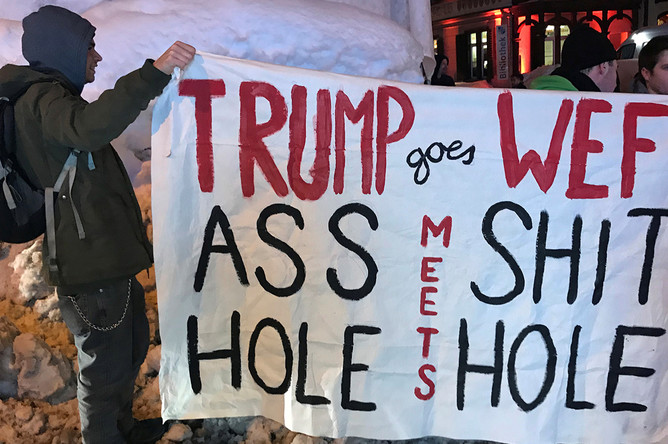 Bibliothek
TRUMP goes WEF
ASS MEETS SHIT
HOLE HOLE